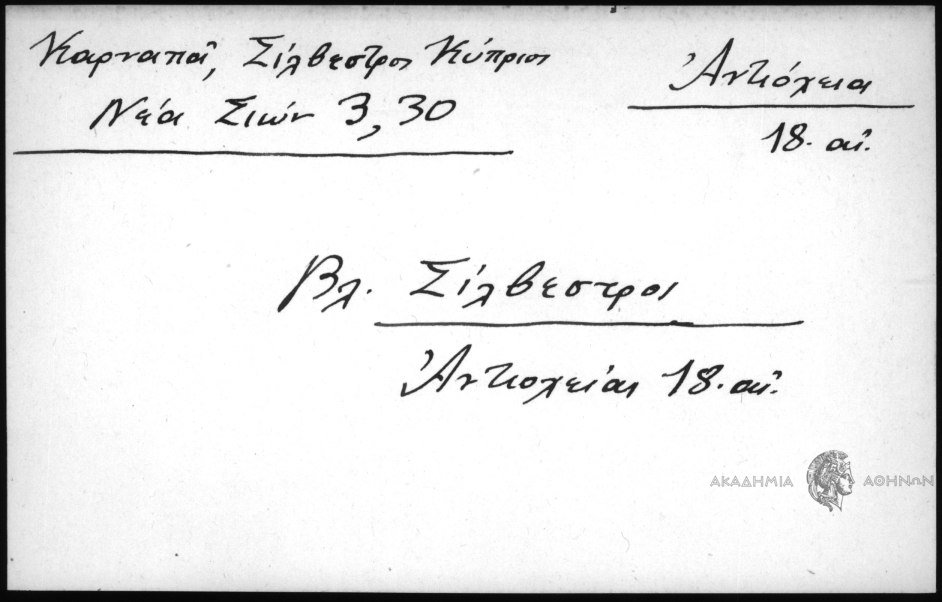 Καρναπᾶ, Σίλβεστρος Κύπριος
Νέα Σιών 3, 30
Ἀντιόχεια
18. αἰ.
Βλ. Σίλβεστρος
Ἀντιοχείας 18. αἰ.
ΑΚΑΔΗΜΙΑ ΑΘΗΝΩΝ